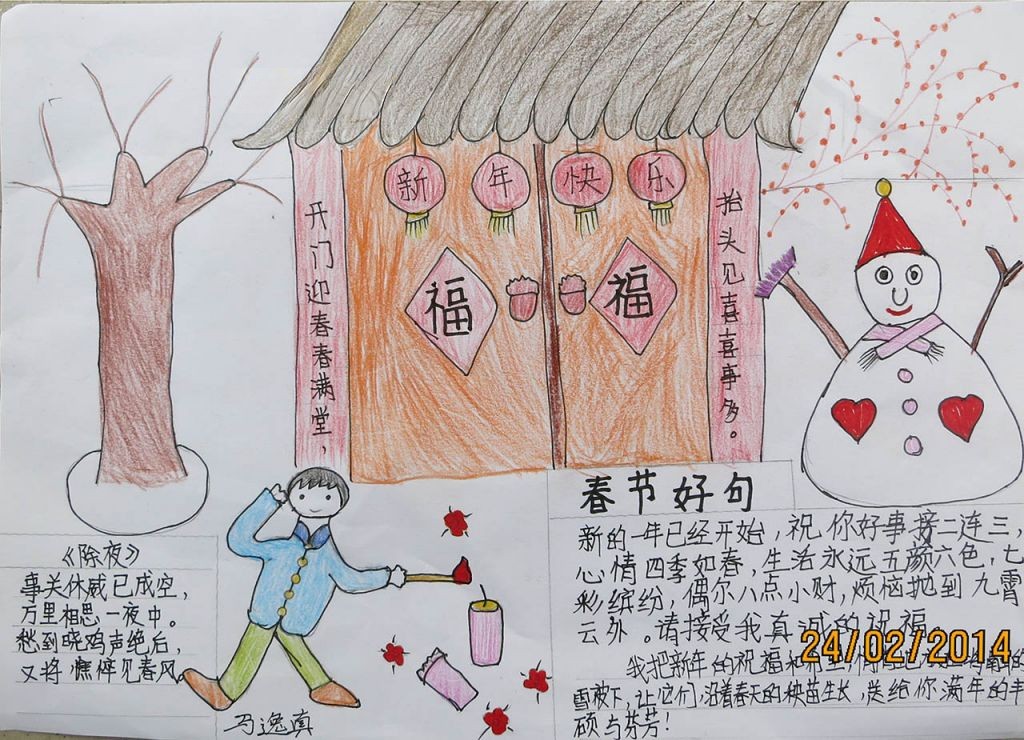 新 年 快 乐
开门迎春春满堂，
福 福
抬头见喜喜事多。
《除夜》
事关休戚已成空，
万里相思一夜中。
愁到晓鸡声绝后，
又将憔悴见春风。
马逸真
春节好句
新的一年已经开始，祝你好事接二连三，
心情四季如春，生活永远五颜六色，七
彩缤纷，偶尔八点小财，烦恼抛到九霄
云外。请接受我真诚的祝福。
24/02/2014
我把新年的祝福和 的
雪被下，让它们沿着春天的秧苗生长，送给你满年的丰
硕与芬芳！